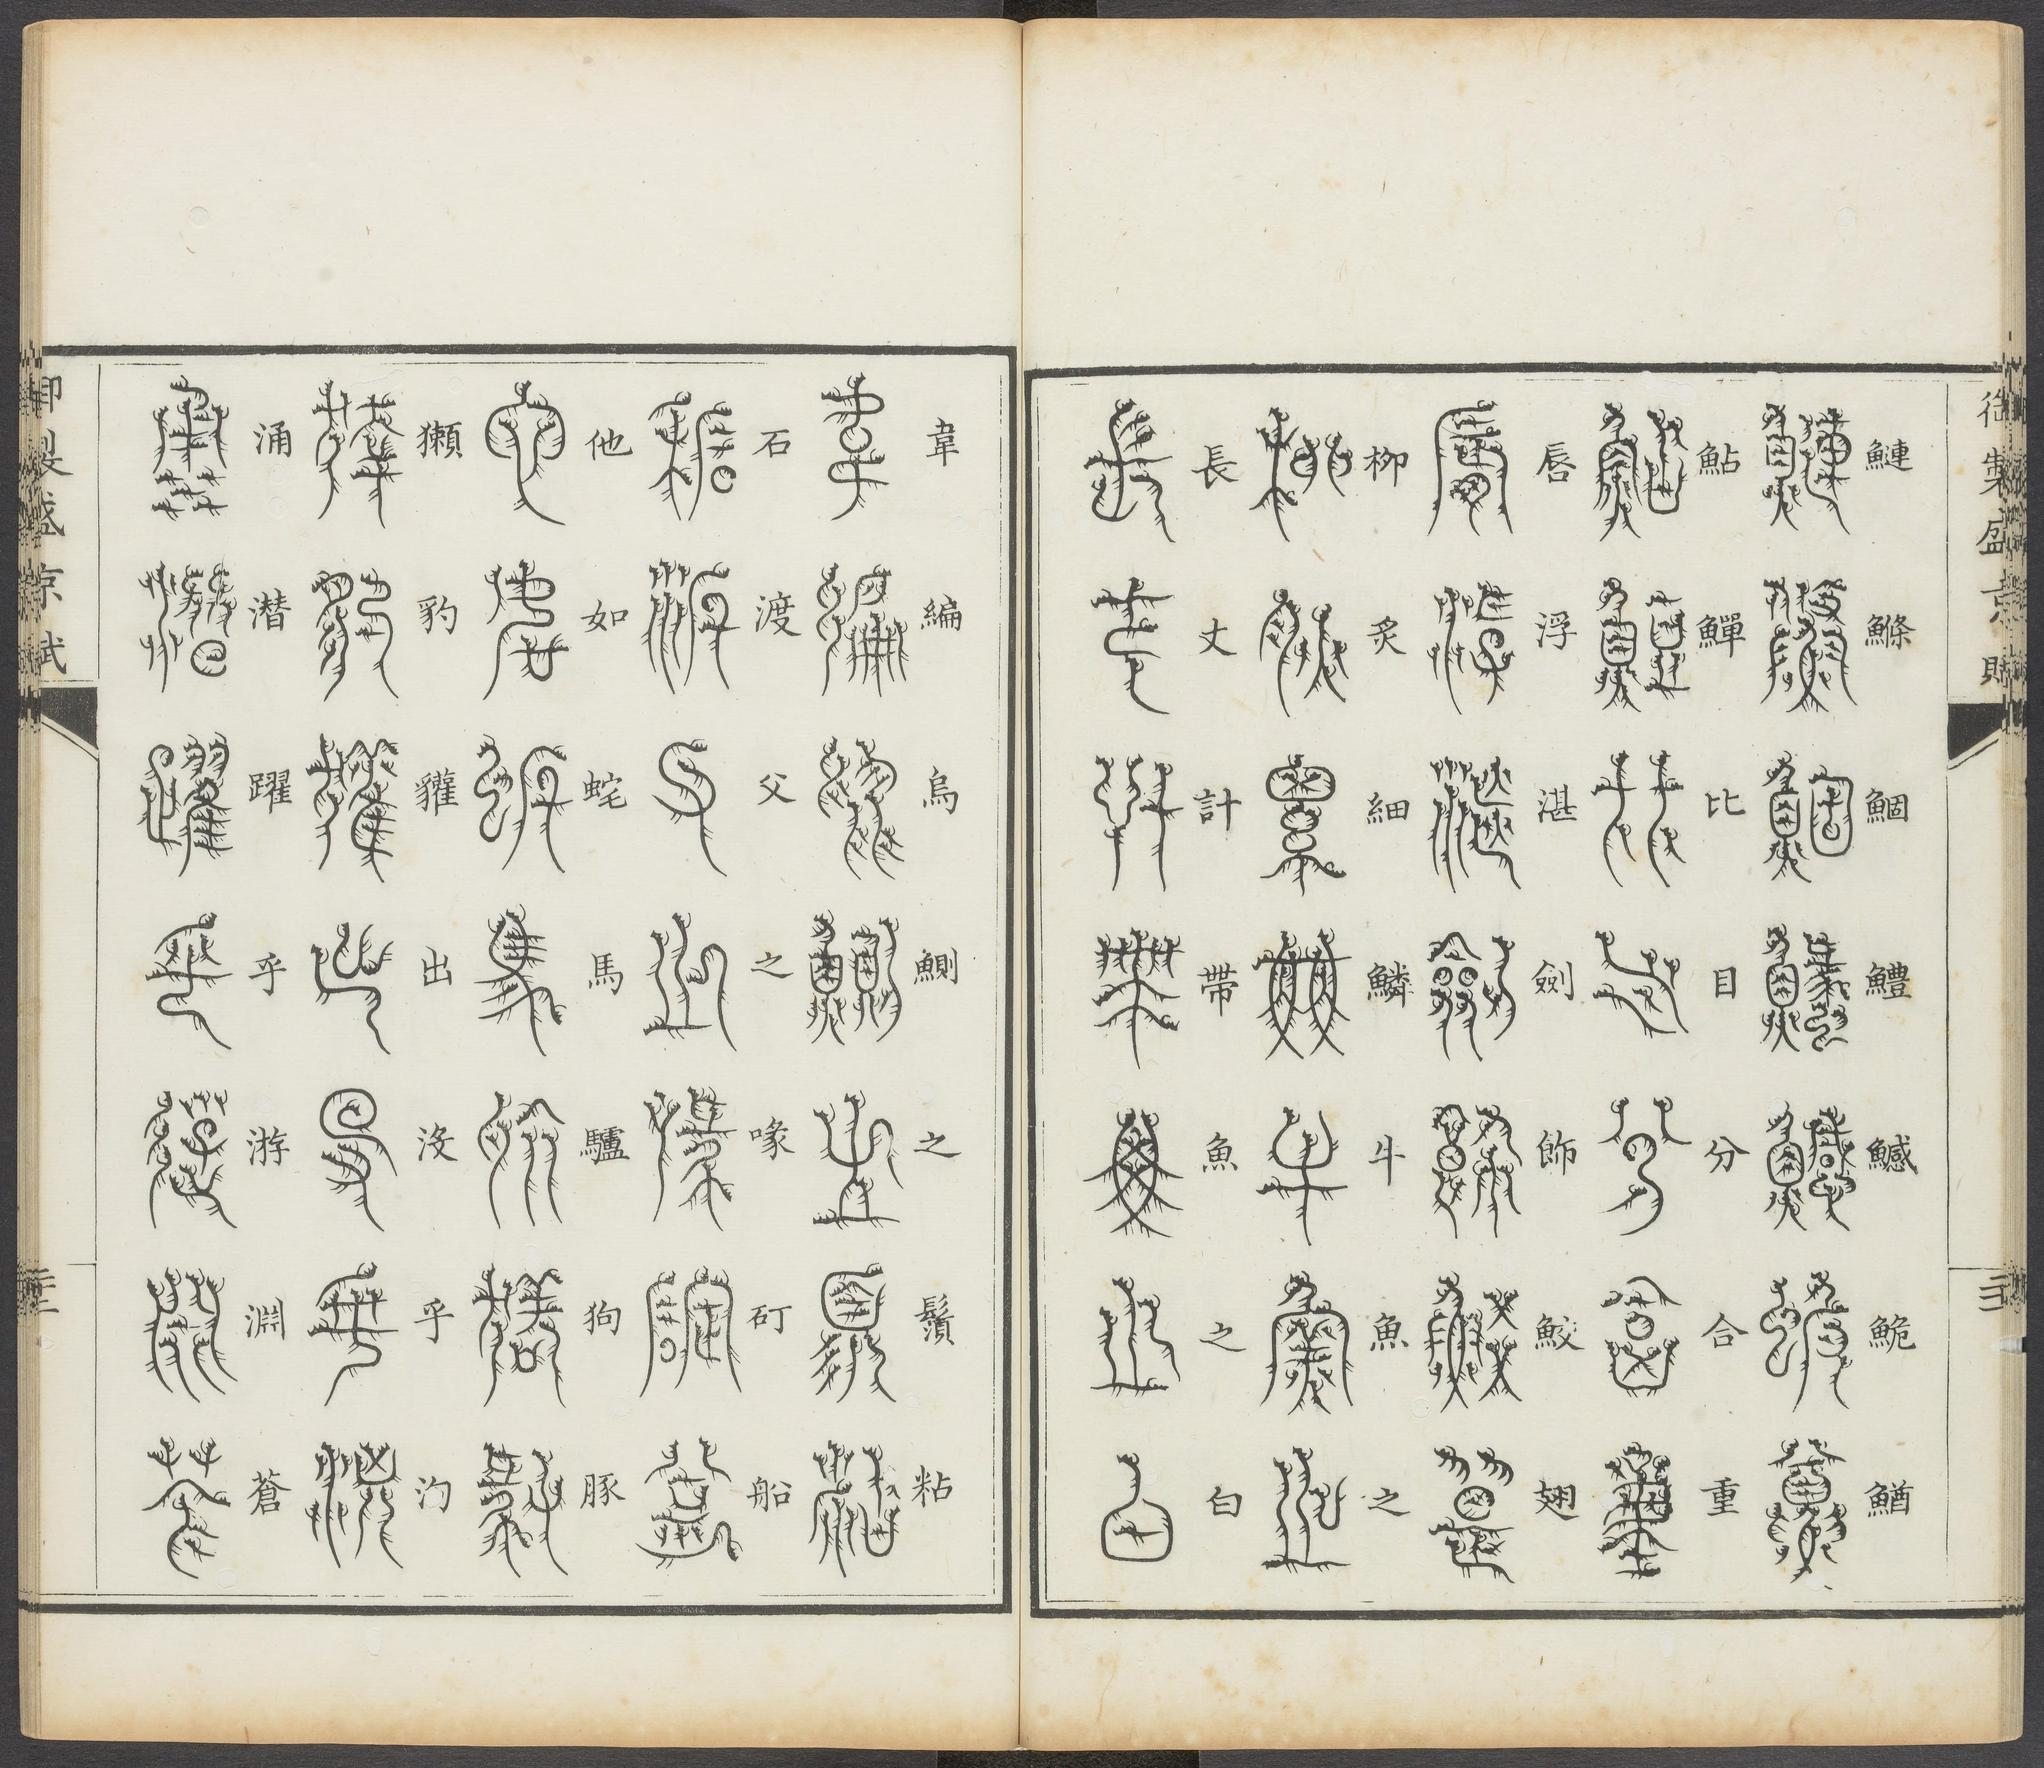 御製盛京賦
鰱鰷鯝鱧鱤鮠鰌
鮎鱓比目分合重
唇浮湛劍飾鮫翅
柳炙細鱗牛魚之
長丈計帶魚之白
韋編烏鰂之鬚粘
石渡父之喙矴船
他如蛇馬驢狗豚
獺豹貛出沒乎沕
涌潛躍乎游淵蒼
御製盛京賦